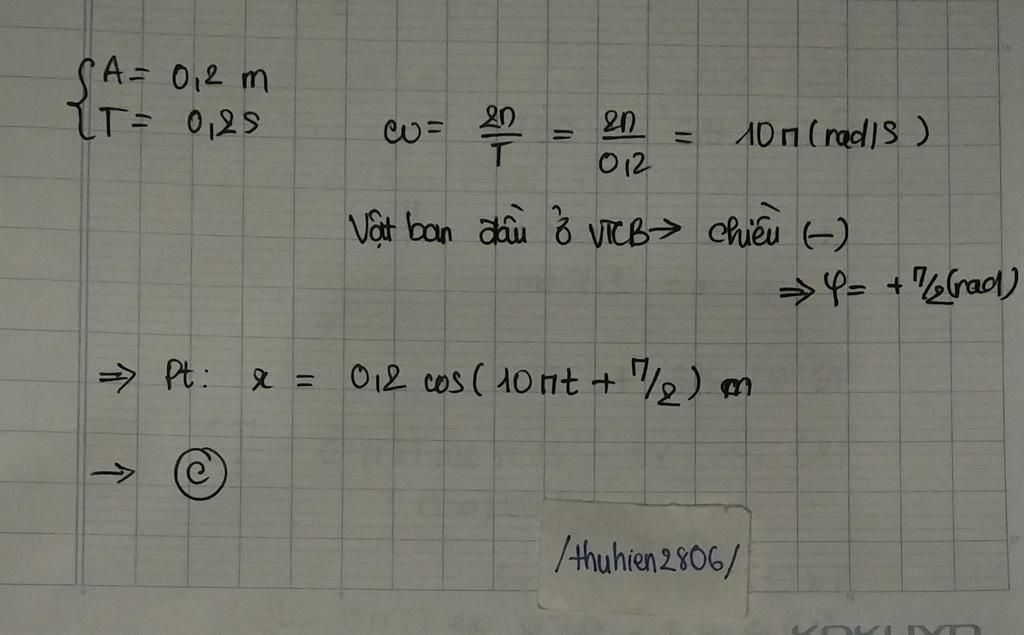 A = 0,2 m
T = 0,2 s
ω = 2π/T = 2π/0,2 = 10π (rad/s)
Vật ban đầu ở VTCB → chiều (-)
⇒ φ = + π/2 (rad)
⇒ Pt: x = 0,2 cos(10πt + π/2) m
→ C
/thuhien2806/